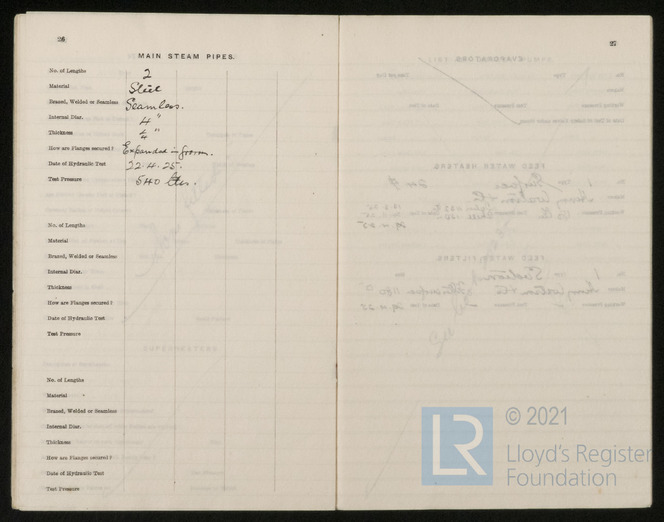 26
MAIN STEAM PIPES.
No. of Lengths 2
Material Steel
Brazed, Welded or Seamless Seamless.
Internal Diar. 4"
Thickness 1/4"
How are Flanges secured? Expanded in groove.
Date of Hydraulic Test 22.4.25.
Test Pressure 540 lbs.
No. of Lengths
Material
Brazed, Welded or Seamless
Internal Diar.
Thickness
How are Flanges secured?
Date of Hydraulic Test
Test Pressure
No. of Lengths
Material
Brazed, Welded or Seamless
Internal Diar.
Thickness
How are Flanges secured?
Date of Hydraulic Test
Test Pressure
27
LR
© 2021
Lloyd's Register
Foundation